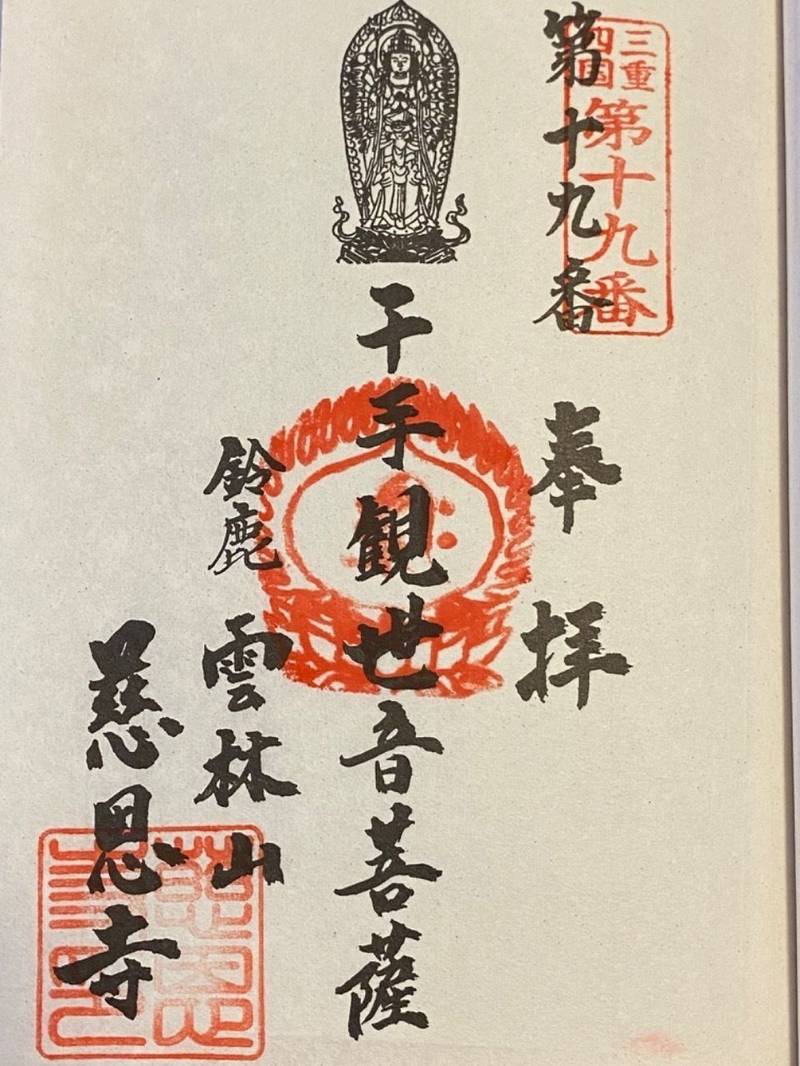 三重
四国
第十九番
第十九番
奉拝
千手観世音菩薩
鈴鹿 雲林山
慈恩寺
慈恩
寺印